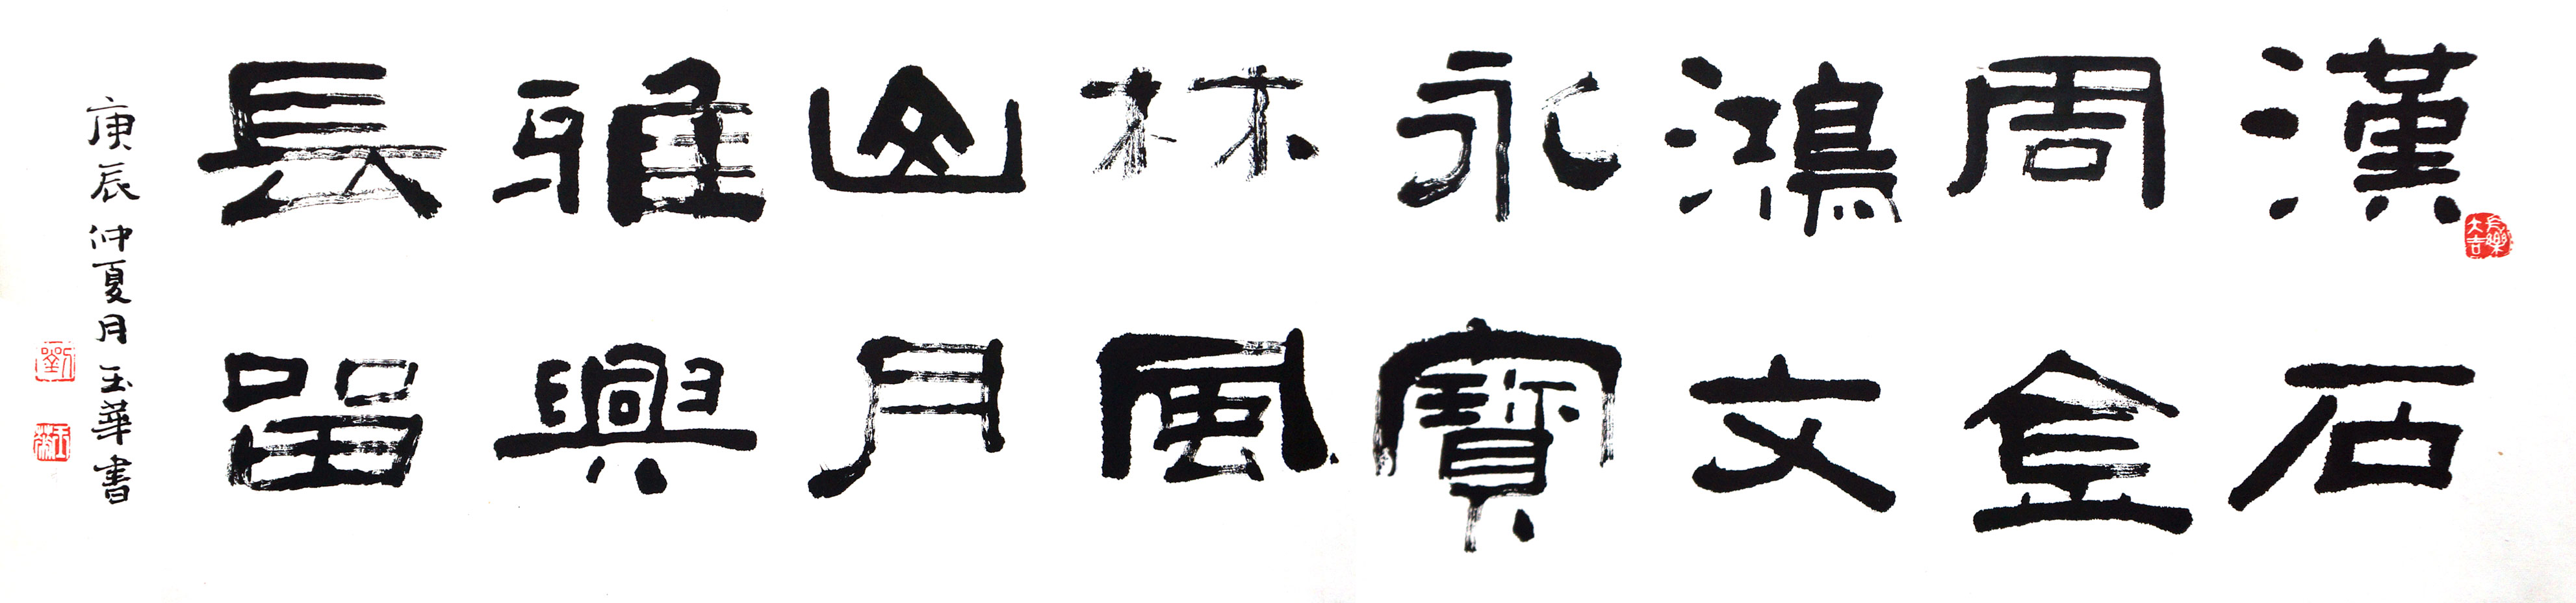 漢石
周金
鴻文
永寶
林風
山月
雅興
長留
庚辰仲夏月玉華書
長樂
大吉
劉
玉華